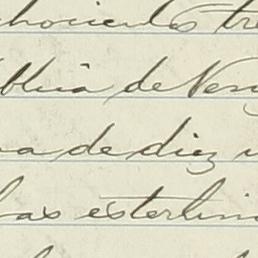 ochocientos tre
ública de Vene
va de diez
bras esterlina